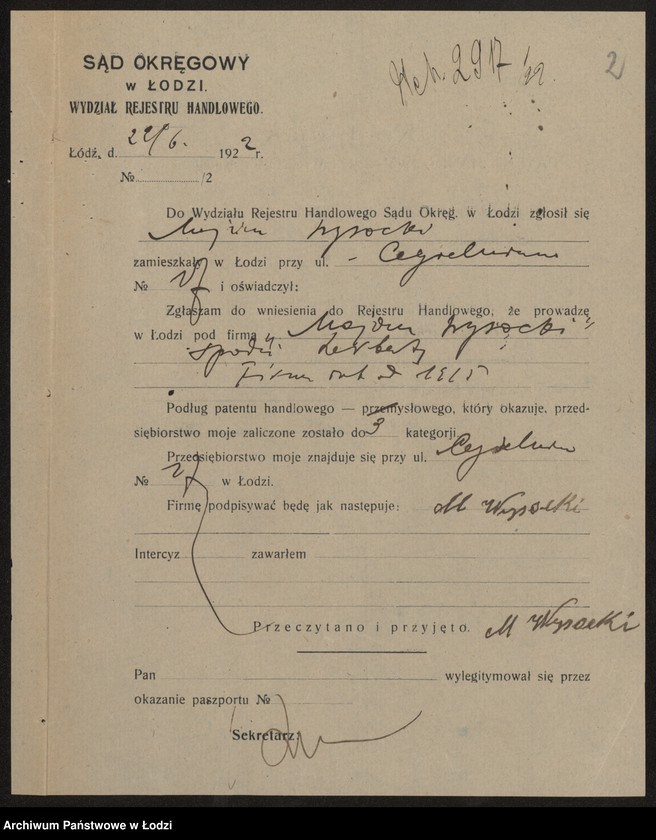 2
2917/22.
SĄD OKRĘGOWY
W ŁODZI.
WYDZIAŁ REJESTRU HANDLOWEGO.
Łódź, d. 22/6. 1922 r.
№ /2
Do Wydziału Rejestru Handlowego Sądu Okręg. w Łodzi zgłosił się
Wysocki
zamieszkały w Łodzi przy ul. Cegielniana
№ i oświadczył:
Zgłaszam do wniesienia do Rejestru Handlowego, że prowadzę
w Łodzi pod firmą „ Wysocki"
herbaty
Firma od 1915
Podług patentu handlowego — przemysłowego, który okazuje, przed-
siębiorstwo moje zaliczone zostało do 3 kategorji
Przedsiębiorstwo moje znajduje się przy ul. Cegielniana
№ w Łodzi.
Firmę podpisywać będę jak następuje: M Wysocki
Intercyz zawarłem
Przeczytano i przyjęto. M Wysocki
Pan wylegitymował się przez
okazanie paszportu №
Sekretarz:
Archiwum Państwowe w Łodzi